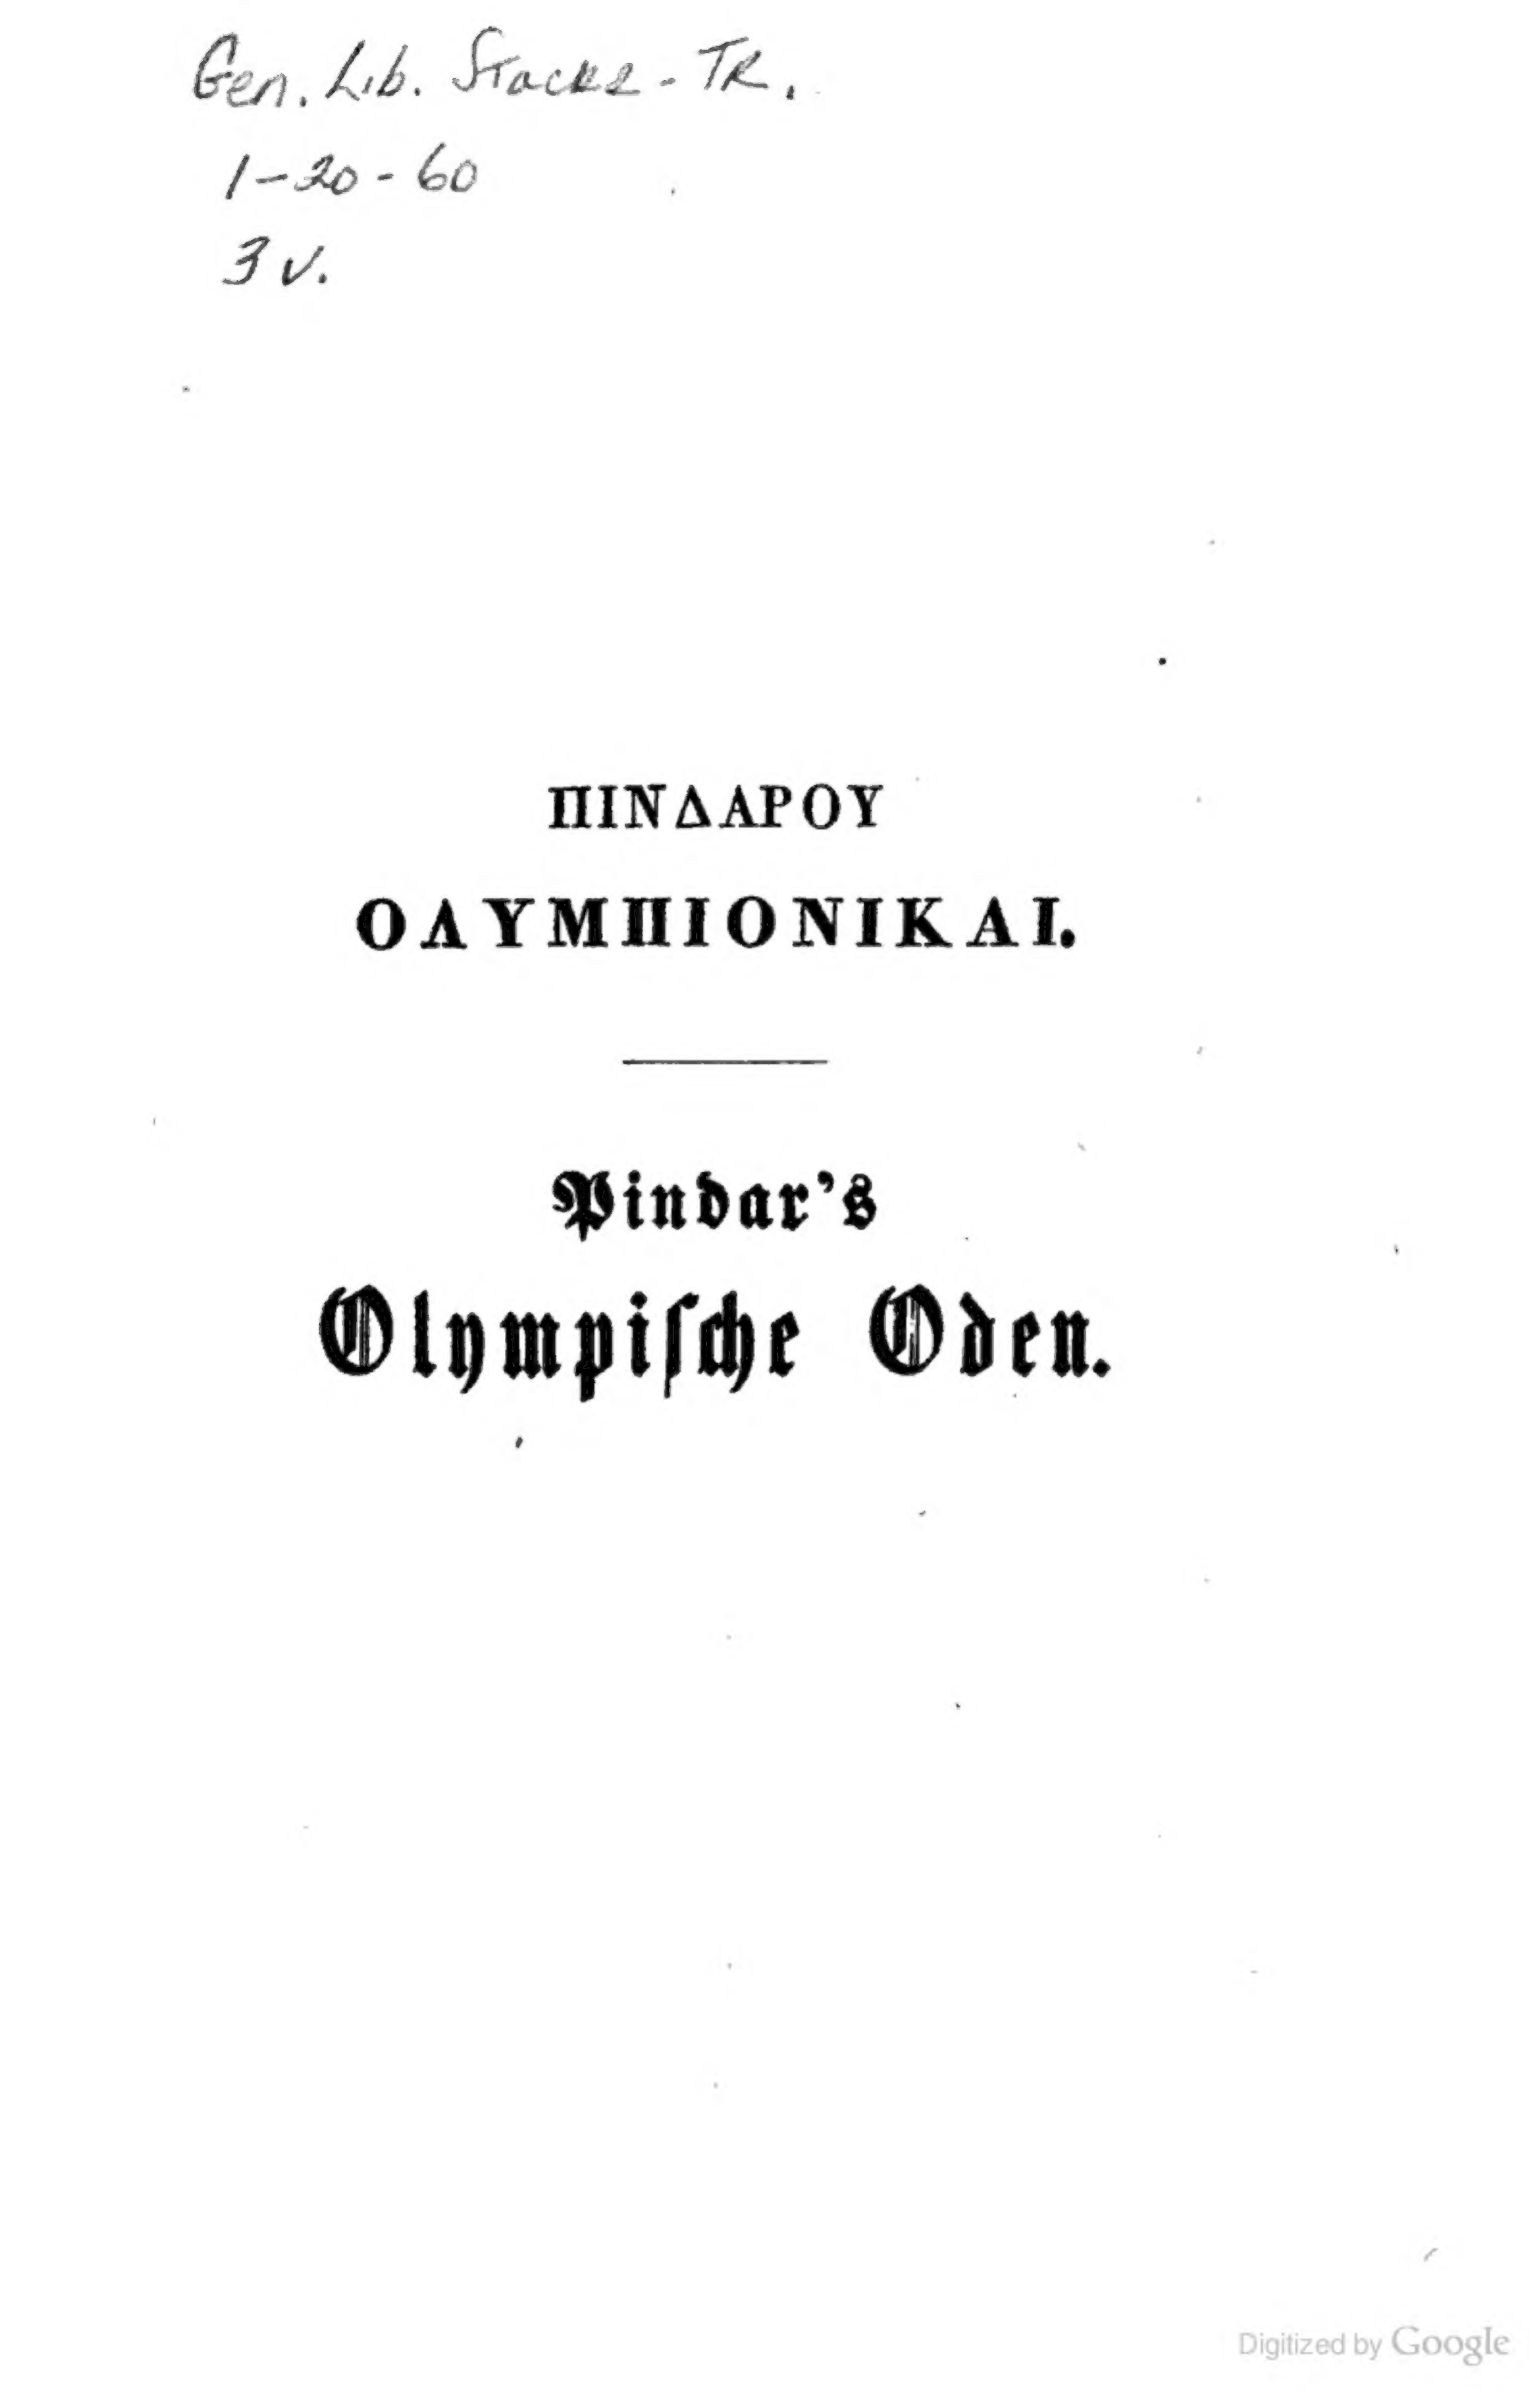 Gen. Lib. Stacks - TR.
1-20-60
3 v.
ΠΙΝΔΑΡΟΥ
ΟΛΥΜΠΙΟΝΙΚΑΙ.
Pindar's
Olympiſche Oden.
Digitized by Google